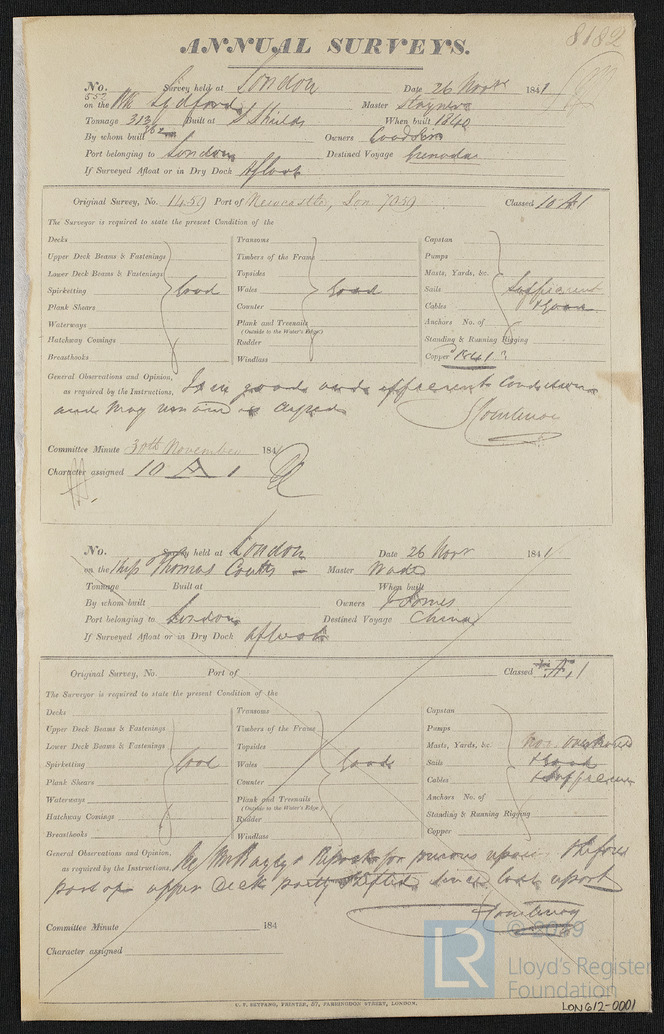 8182
ANNUAL SURVEYS.
No. 552 Survey held at London Date 26 Novr 1841
on the Bk Lydford Master
Tonnage 313 Built at S Shields When built 1840
By whom built Owners
Port belonging to London Destined Voyage Grenada
If Surveyed Afloat or in Dry Dock Afloat
Original Survey, No. 1459 Port of Newcastle, Lon 7059 Classed 10 A 1
The Surveyor is required to state the present Condition of the
Decks Transoms Capstan
Upper Deck Beams & Fastenings Timbers of the Frame Pumps
Lower Deck Beams & Fastenings Topsides Masts, Yards, &c.
Spirketting Good Wales Good Sails Sufficient
Plank Shears Counter Cables & Good
Waterways Plank and Treenails Anchors No. of
(Outside to the Water's Edge)
Hatchway Comings Rudder Standing & Running Rigging
Breasthooks Windlass Copper "1841"
General Observations and Opinion, Is in good and efficient Condition
as required by the Instructions,
and may remain as Classed
Committee Minute 30th November 1841
Character assigned 10 A 1
No. Survey held at London Date 26 Novr 1841
on the Ship Thomas Coutts Master Wade
Tonnage Built at When built
By whom built Owners J Somes
Port belonging to London Destined Voyage China
If Surveyed Afloat or in Dry Dock afloat
Original Survey, No. Port of Classed A 1
The Surveyor is required to state the present Condition of the
Decks Transoms Capstan
Upper Deck Beams & Fastenings Timbers of the Frame Pumps
Lower Deck Beams & Fastenings Topsides Masts, Yards, &c
Spirketting Good Wales Good Sails & Good
Plank Shears Counter Cables & Sufficient
Waterways Plank and Treenails Anchors No. of
(Outside to the Water's Edge)
Hatchway Comings Rudder Standing & Running Rigging
Breasthooks Windlass Copper
General Observations and Opinion,
as required by the Instructions,
part of upper Deck partly shifted since last report
Committee Minute 184
Character assigned
C. F. SEYFANG, PRINTER, 57, FARRINGDON STREET, LONDON.
LR
© 2019
Lloyd's Register
Foundation
LON612-0001